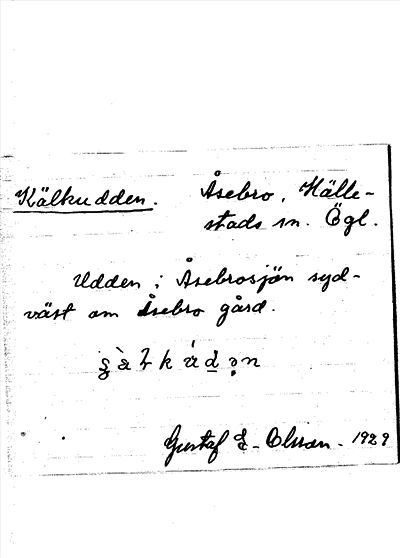 Kälkudden.
Åsebro, Hälle-
stads sn. Ögl.
Udden i Åsebrosjön syd-
väst om Åsebro gård.
Gustaf E. Olsson. 1929